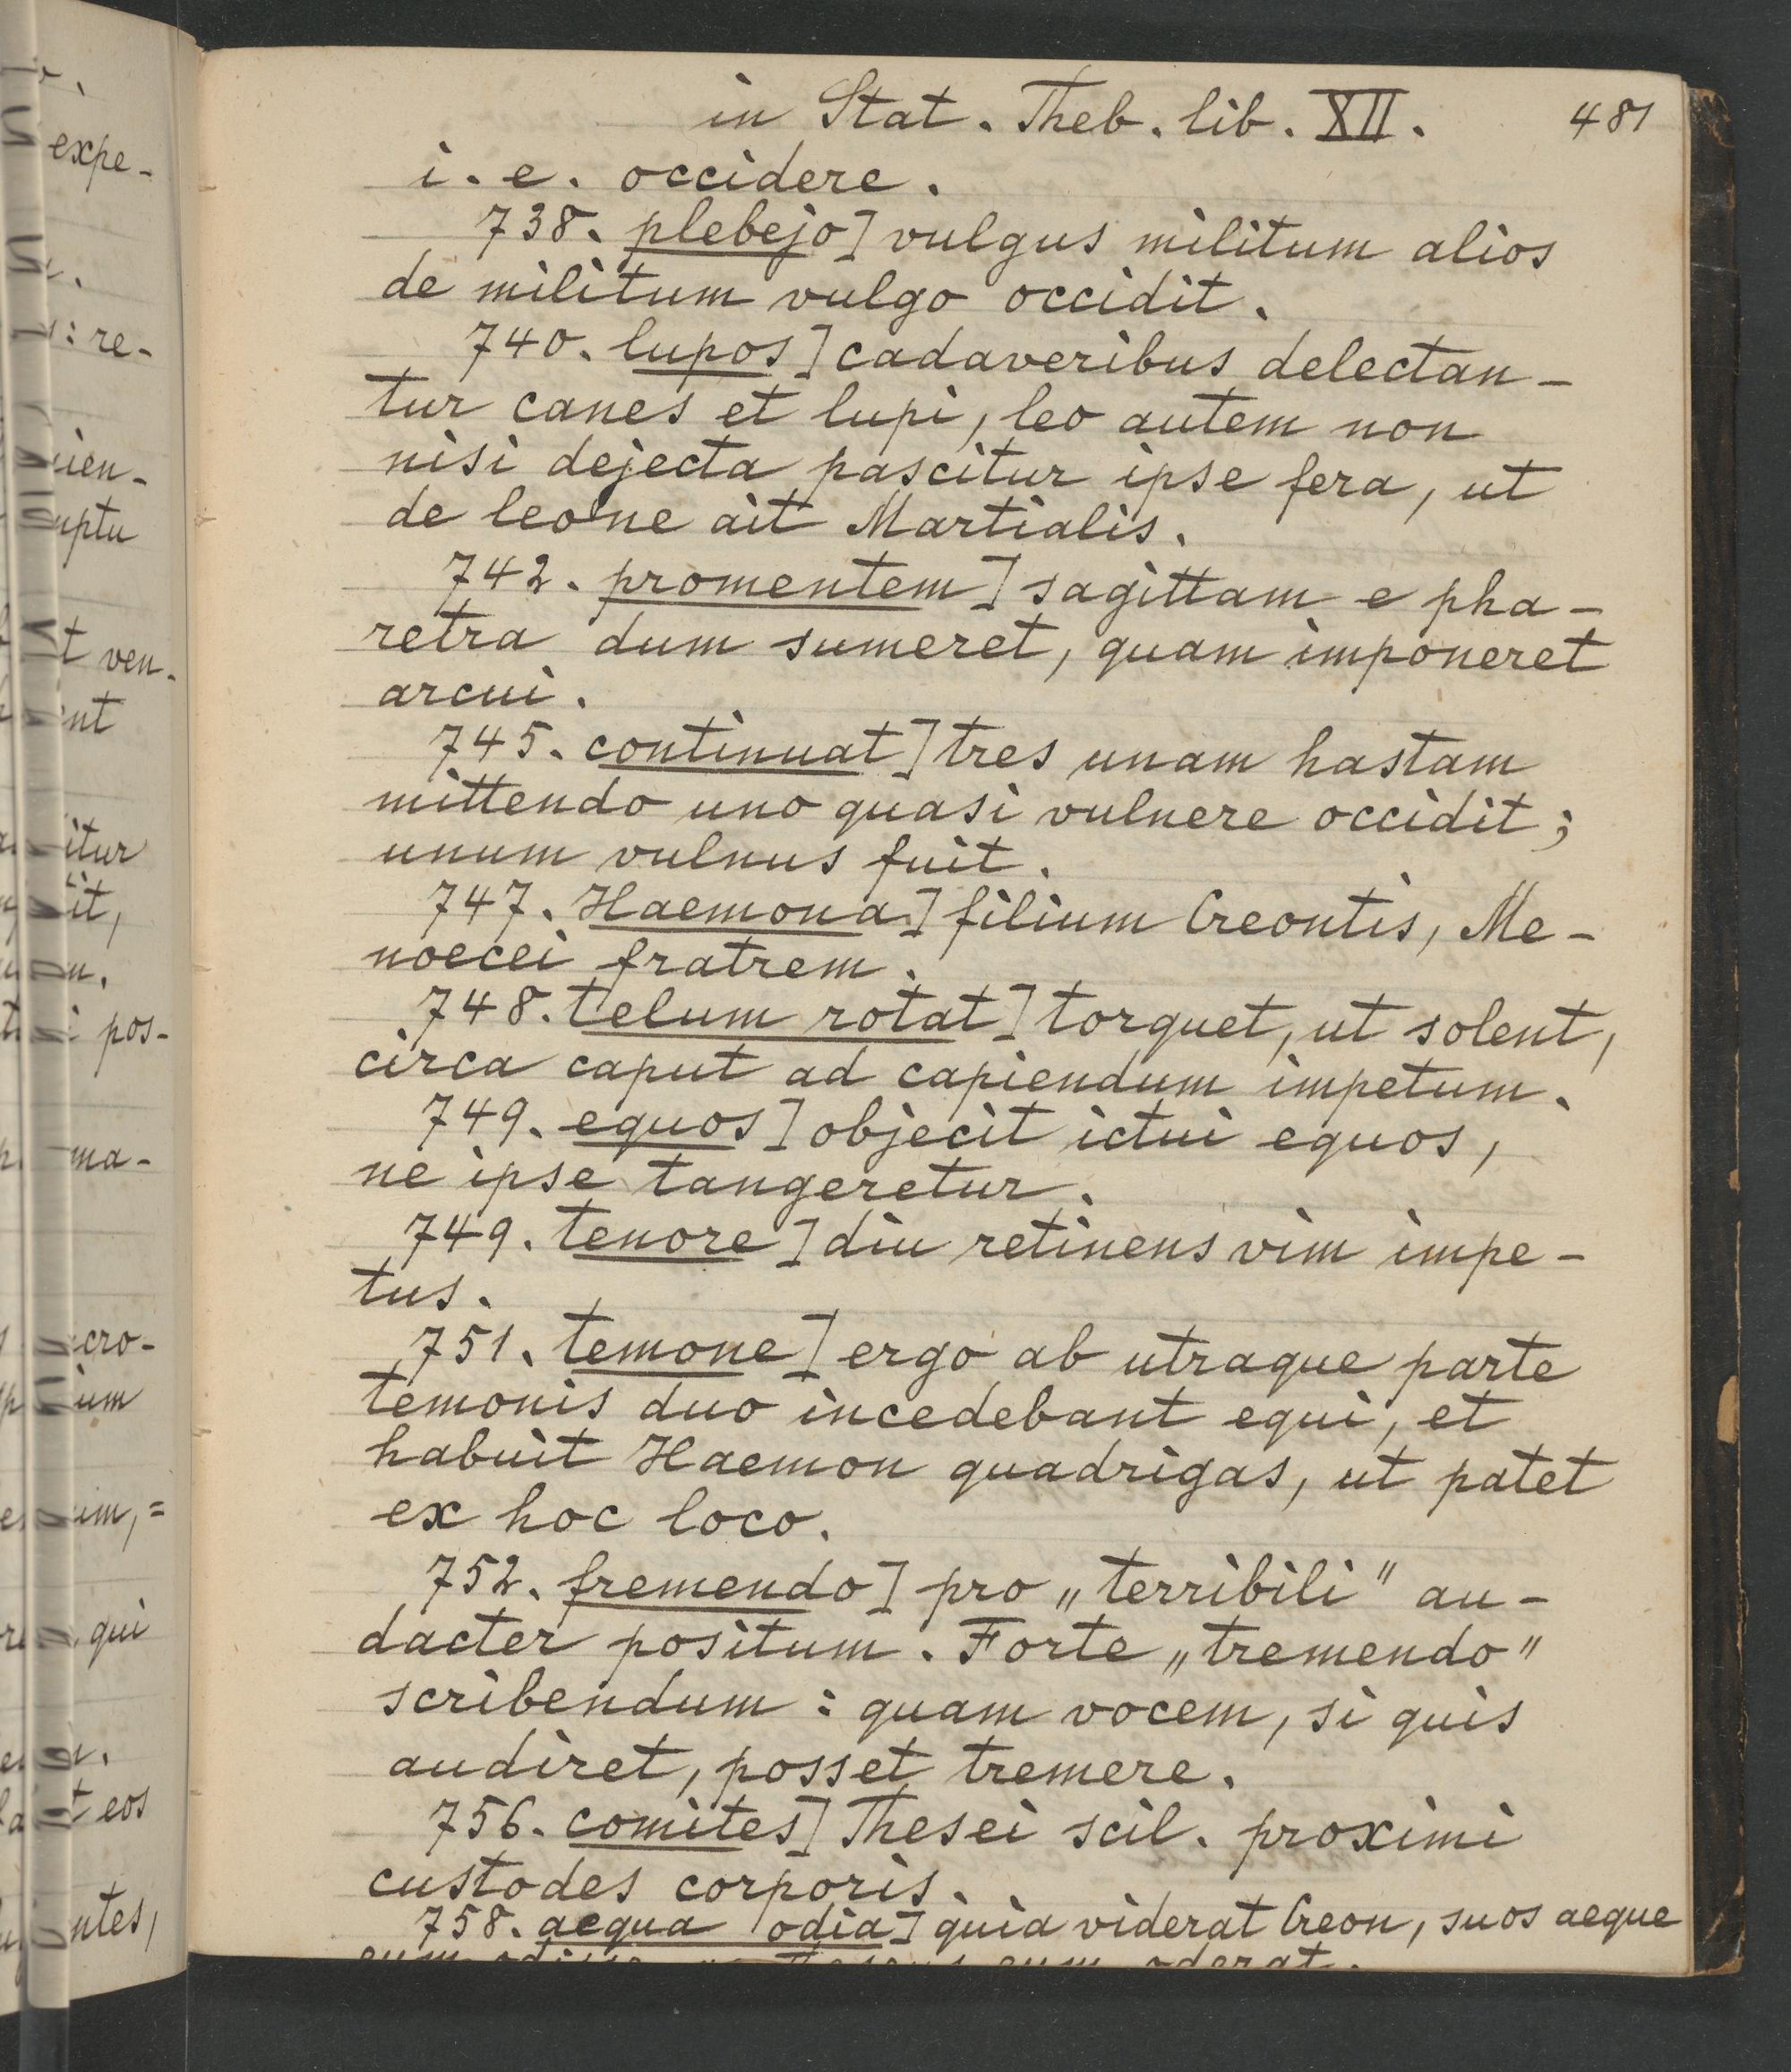 in Stat. Theb. lib. XII. 481
i. e. occidere.
738. plebejo] vulgus militum alios
de militum vulgo occidit.
740. lupos] cadaveribus delectan-
tur canes et lupi, leo autem non
nisi dejecta pascitur ipse fera, ut
de leone ait Martialis.
742. promentem] sagittam e pha-
retra dum sumeret, quam imponeret
arcui.
745. continuat] tres unam hastam
mittendo uno quasi vulnere occidit;
unum vulnus fuit.
747. Haemona] filium Creontis, Me-
noecei fratrem.
748. telum rotat] torquet, ut solent,
circa caput ad capiendum impetum.
749. equos] objecit ictui equos,
ne ipse tangeretur.
749. tenore] diu retinens vim impe-
tus.
751. temone] ergo ab utraque parte
temonis duo incedebant equi, et
habuit Haemon quadrigas, ut patet
ex hoc loco.
752. fremendo] pro „terribili" au-
dacter positum. Forte „tremendo"
scribendum: quam vocem, si quis
audiret, posset tremere.
756. comites] Thesei scil. proximi
custodes corporis.
758. aequa odia] quia viderat Creon, suos aeque
eum oderat.
expe-
re-
ven.
pos-
ma-
qui
eos